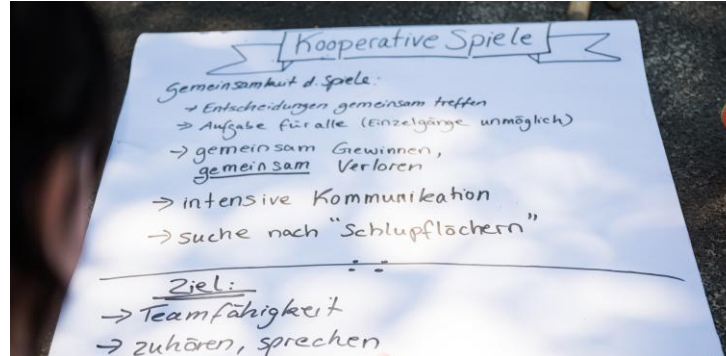 Kooperative Spiele
Gemeinsamkeit d. Spiele:
→ Entscheidungen gemeinsam treffen
→ Aufgabe für alle (Einzelgänge unmöglich)
→ gemeinsam Gewinnen,
gemeinsam Verloren
→ intensive Kommunikation
→ suche nach "Schlupflöchern"
Ziel:
→ Teamfähigkeit
→ zuhören, sprechen